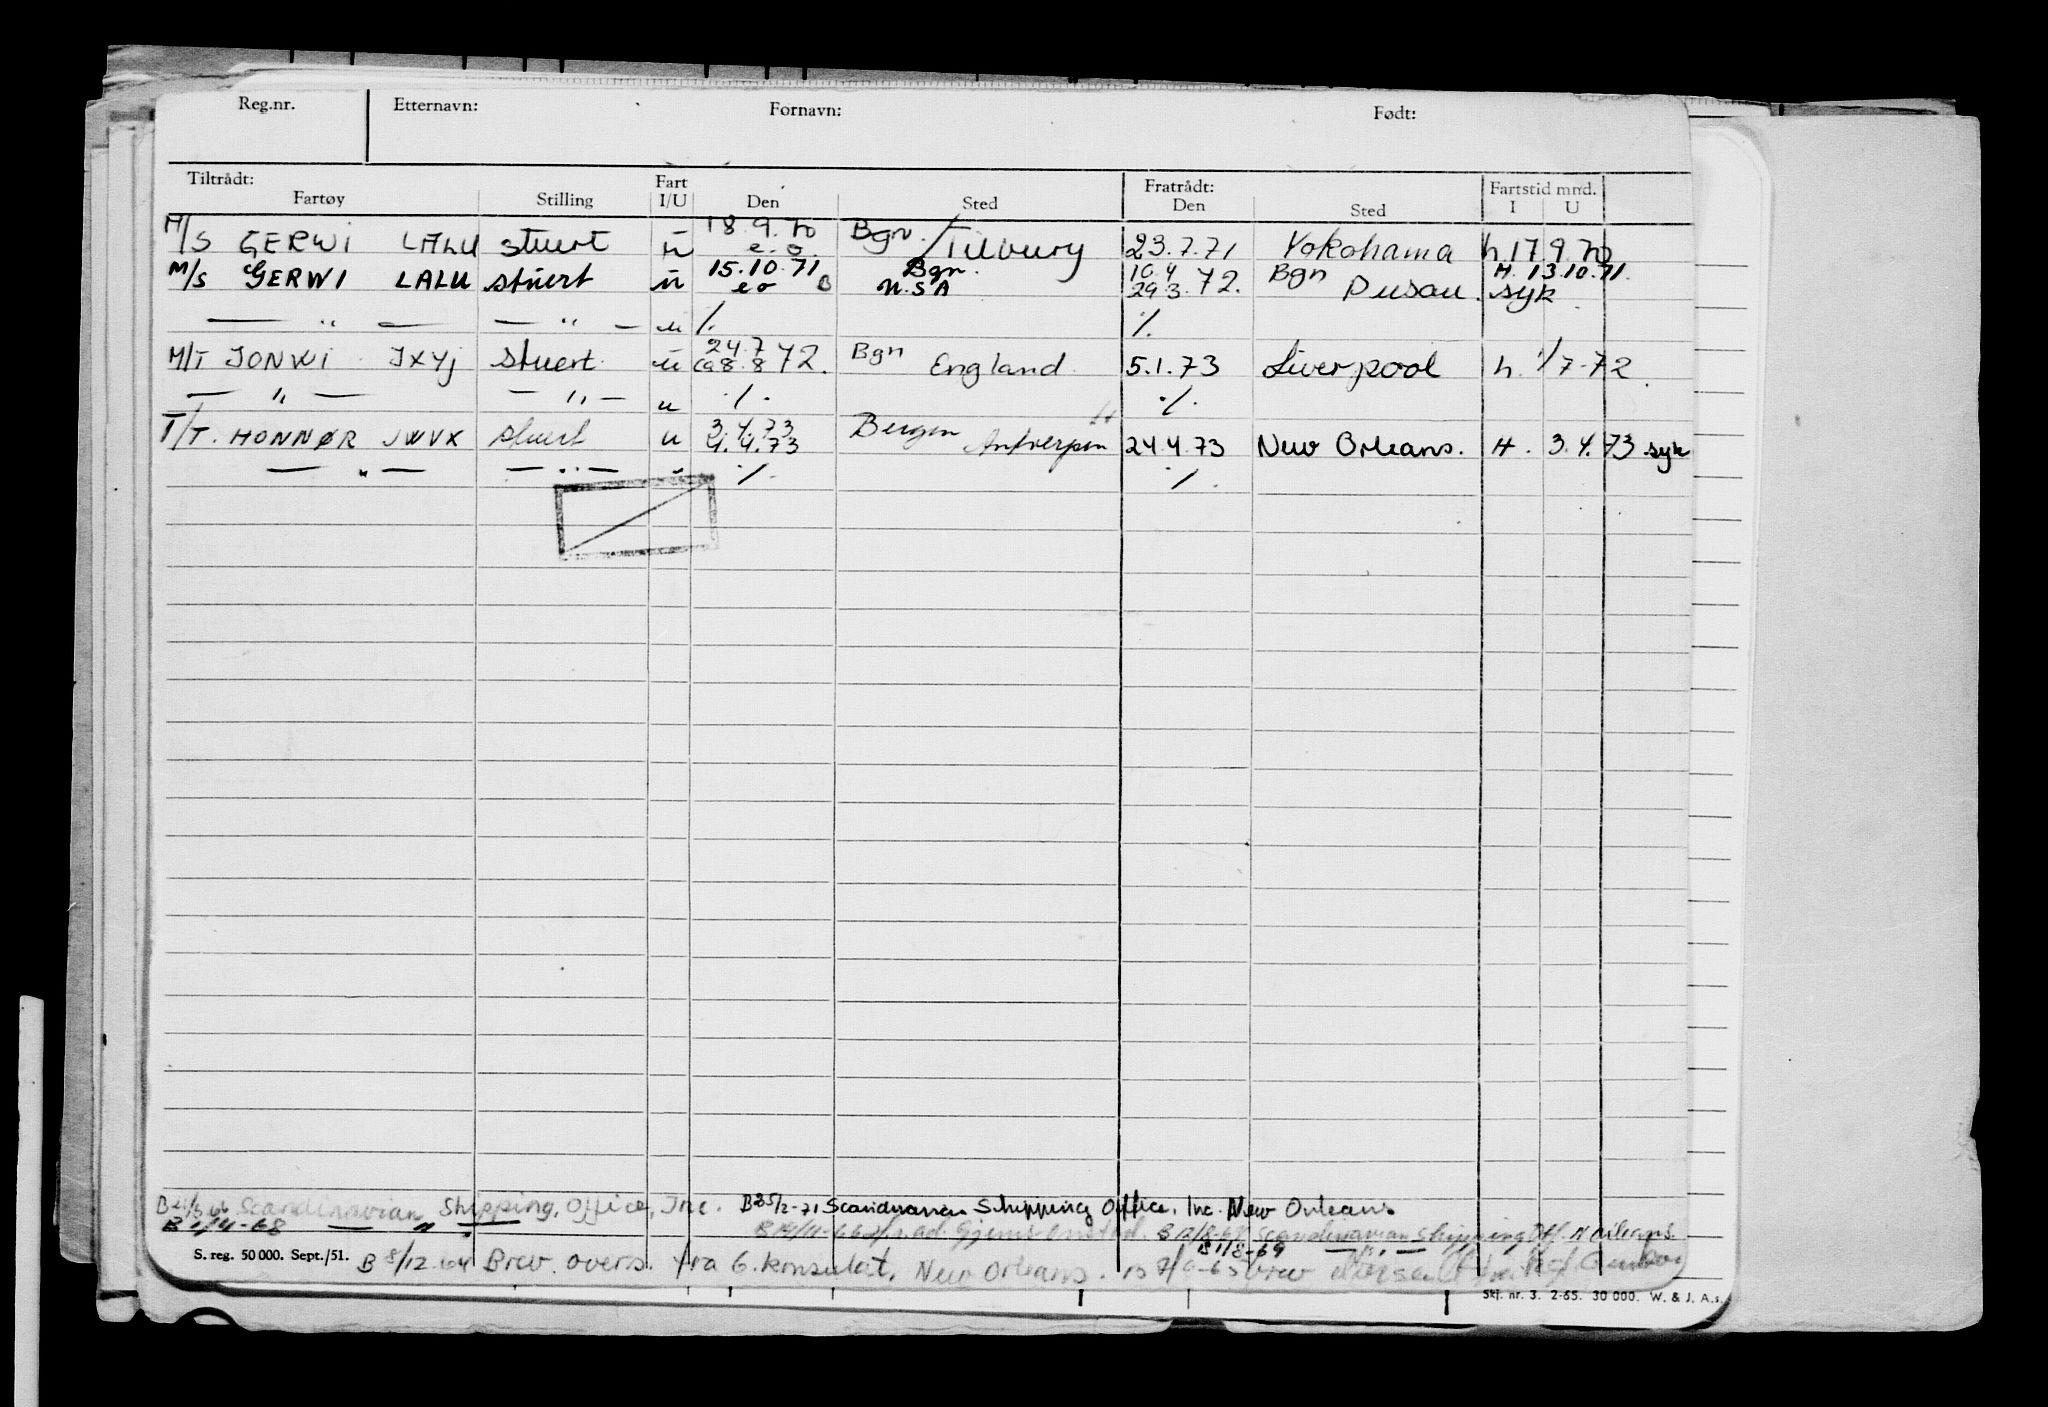 Reg.nr. Etternavn: Fornavn: Født:
Tiltrådt: Fart Fratrådt: Fartstid mnd.
Fartøy Stilling I/U Den Sted Den Sted I U
M/S GERWI LALU stuert u 18.9.70 e.o. Bgn./Tilbury 23.7.71 Yokohama h. 17 9.70
M/S GERWI LALU stuert u 15.10.71 eo Bgn. U.S.A 10.4 29.3.72. Bgn Pusan. H. 13.10.71. syk
— " — — " — u ./. ./.
M/T JONWI JXYJ stuert u 24.7 ca 8.8 72. Bgn England 5.1.73 Liverpool h. 1/7-72.
— " — — " — u ./. ./.
T/T. HONNØR JWVX stuert u 3.4.73 4.4.73 Bergen Antwerpen 24.4.73 New Orleans. H. 3.4.73 syk
— " — — " — " ./. ./.
Scandinavian Shipping, Office, Inc. B 25/2-71 Scandinavian Shipping Office, Inc. New Orleans
B 1/4-68 — " — Scandinavian Shipping Off. N Orleans
B 1/8-69 — " —
S. reg. 50 000. Sept./51. B 8/12.64 Brev. overs. fra G. konsulat, New Orleans.
Skf. nr. 3. 2-65. 30 000. W. & J. A.s.